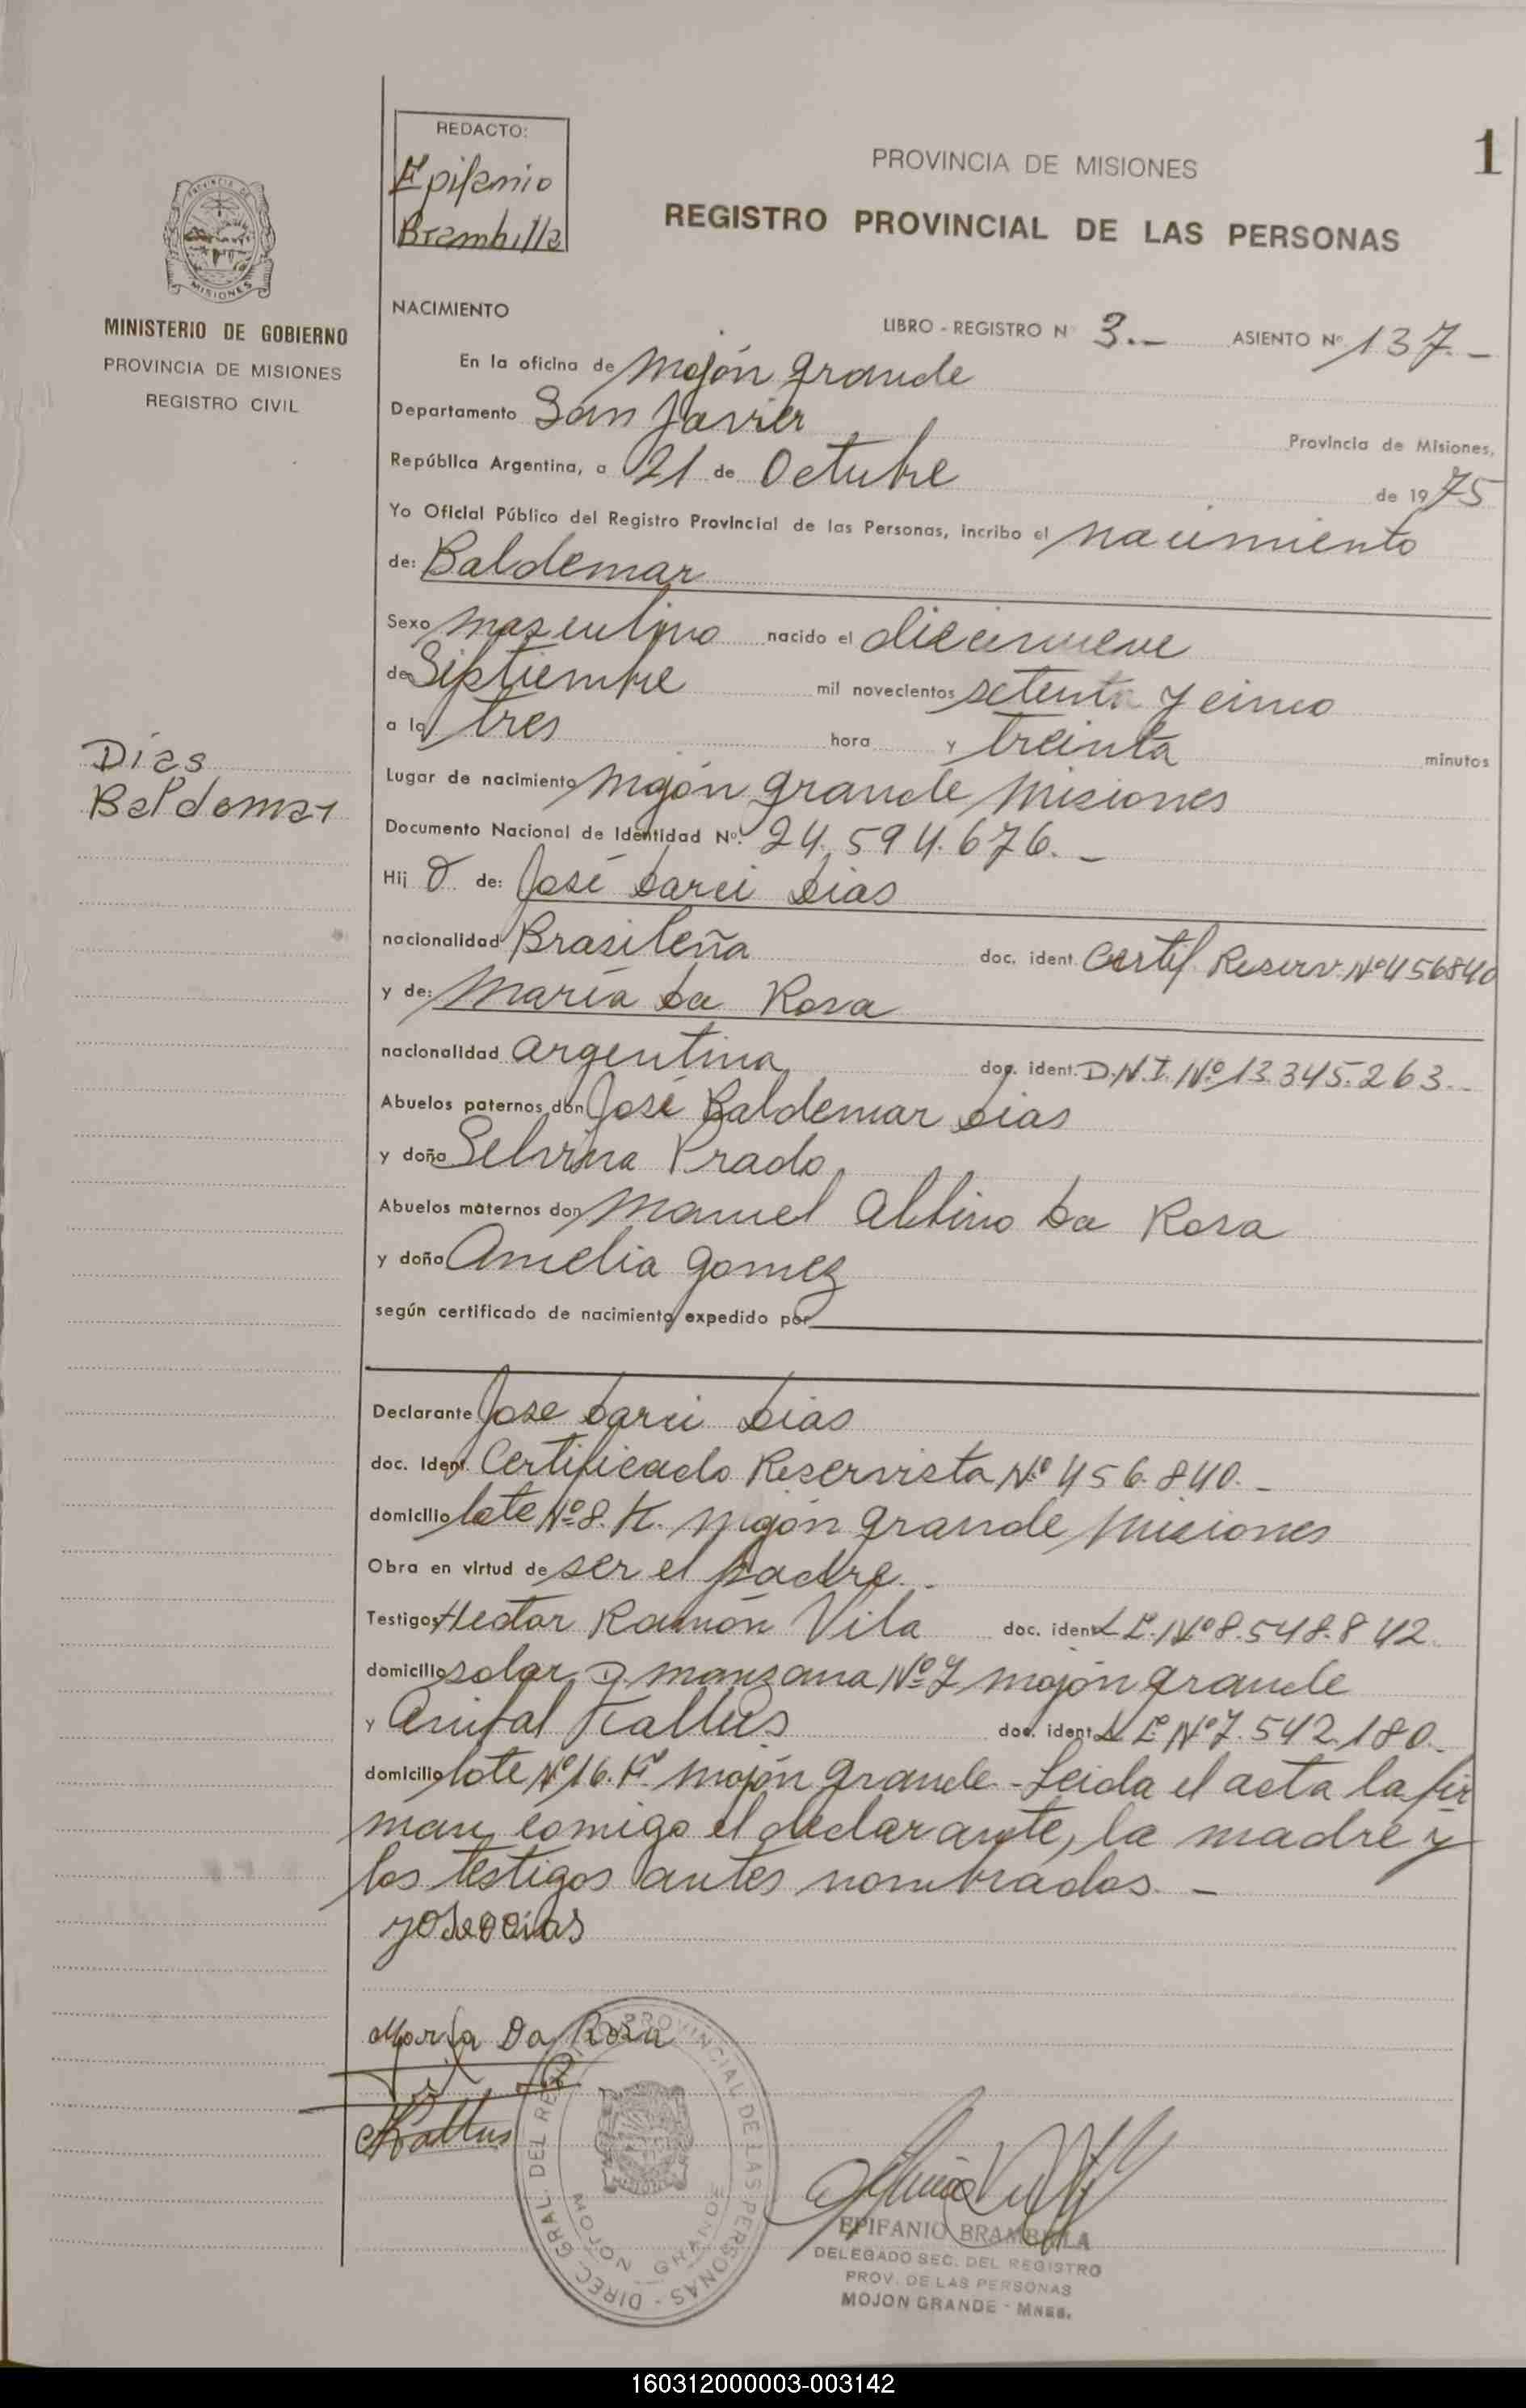 REDACTO:
Epifanio
Brambilla
PROVINCIA DE MISIONES
1
REGISTRO PROVINCIAL DE LAS PERSONAS
MISIONES
MINISTERIO DE GOBIERNO
PROVINCIA DE MISIONES
REGISTRO CIVIL
NACIMIENTO
LIBRO - REGISTRO N° 3.- ASIENTO N° 137.-
En la oficina de Mojón grande
Departamento San Javier Provincia de Misiones,
República Argentina, a 21 de Octubre de 1975
Yo Oficial Público del Registro Provincial de las Personas, incribo el nacimiento
de: Baldemar
Sexo masculino nacido el diecinueve
de Septiembre mil novecientos setenta y cinco
a la tres hora y treinta minutos
Dias
Baldemar
Lugar de nacimiento Mojón grande Misiones
Documento Nacional de Identidad N°. 24.594.676.-
Hij o de: José Darci Dias
nacionalidad Brasileña doc. ident. Certif. Reserv. N° 456840
y de: María Da Rosa
nacionalidad argentina doc. ident. D.N.I. N° 13.345.263.-
Abuelos paternos don José Baldemar Dias
y doña Selvina Prado
Abuelos maternos don Manuel Albino Da Rosa
y doña Amelia gomez
según certificado de nacimiento expedido por
Declarante Jose Darci Dias
doc. Ident. Certificado Reservista N° 456.840.-
domicilio lote N° 8. K. Mojón grande Misiones
Obra en virtud de ser el padre.-
Testigos Hector Ramón Vila doc. ident. L.E. N° 8.548.842.
domicilio solar D manzana N° 7 mojón grande
y Anibal Kallus doc. ident. L.E. N° 7.542.180.-
domicilio lote N° 16. mojón grande - Leida el acta la fir
man comigo el declarante, la madre y
los testigos antes nombrados.-
María Da Rosa
Kallus
DIREC. GRAL. DEL REGISTRO PROVINCIAL DE LAS PERSONAS -
MOJON GRANDE
EPIFANIO BRAMBILLA
DELEGADO SEC. DEL REGISTRO
PROV. DE LAS PERSONAS
MOJON GRANDE - MNES.
160312000003-003142